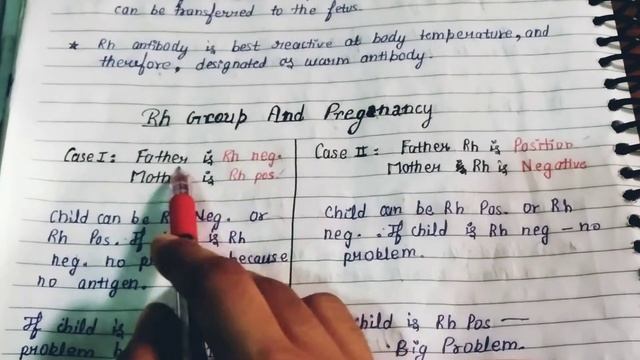 can be transferred to the fetus.
* Rh antibody is best reactive at body temperature, and
therefore, designated as warm antibody.
Rh Group And Pregenancy
Case I: Father is Rh neg.
Moth is Rh pos.
Child can be R Neg. or
Rh Pos. If is Rh
neg. no p because
no antigen.
If child is
problem b
Case II: Father Rh is Position
Mother Rh is Negative
Child can be Rh Pos. or Rh
neg. If child is Rh neg - no
problem.
hild is Rh Pos —
Big Problem.